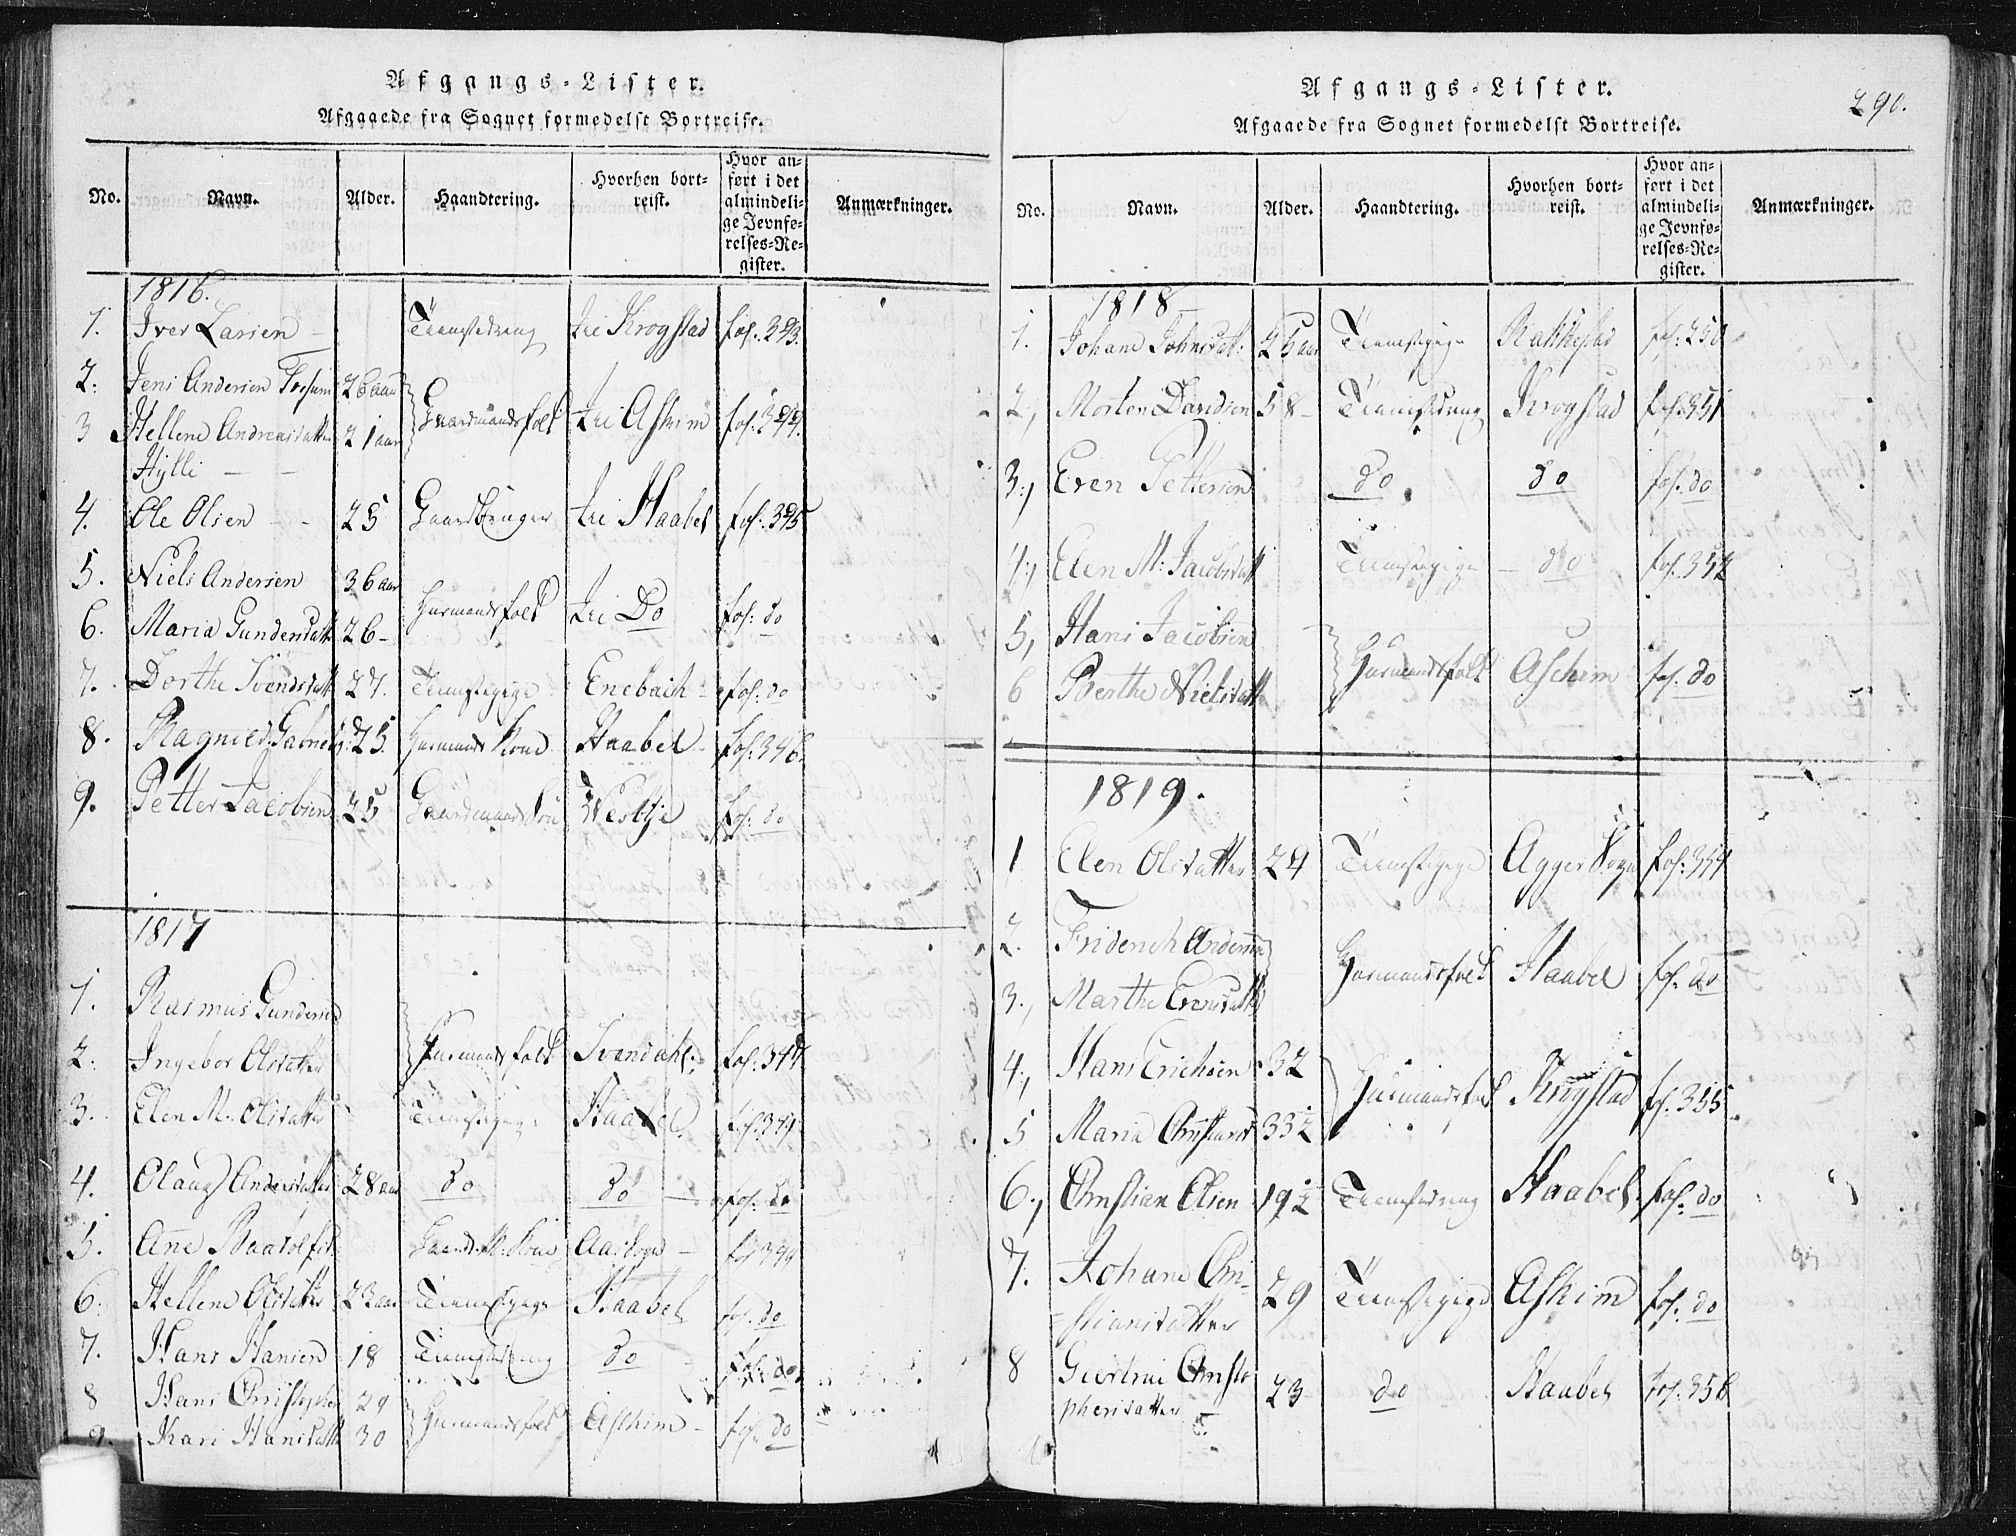 Afgangs-Lister.
Afgaaede fra Sognet formedelst Bortreise.
No. Navn. Alder. Haandtering. Hvorhen bortreist. Hvor anført i det almindelige Jevnførelses-Register. Anmærkninger.
1816.
1. Iver Larsen – Tienestedreng til Krogstad fol: 393.
2. Jens Andersen 26 aar
3 Hellene Andreasdatter 21 aar Gaardmandsfolk til Askim fol: 394.
Hylli
4. Ole Olsen – 25 Gaardbruger til Haabel fol: 395
5. Niels Andersen 36 aar
6. Maria Gundersdatt 26 – Huusmandsfolk til Do fol: do
7. Dorthe Svendsdatt 27. Tienestepige Enebach – fol: do
8. Ragnild 25. Huusmands Kone Haabel – fol: 346.
9. Petter Jacobsen 25 Gaardmands Søn Wesbye fol: do
1817
1. Rasmus Gundersen
2. Ingebor Olsdatter Huusmandsfolk Svendahl: fol: 347
3. Elen M. Olsdatter Tienestepige Haabel. fol: 349
4. Andersdatter 28 aar do do – fol: do
5. Ane Gaardm. Kone Aas Sogn –
6. Hellene Olsdatter 23 aar Tienestepige Haabel fol: do
7. Hans Hansen 18 Tienestedreng do fol: do
8 Hans Christopher 29
9. Kari Hansdatt 30 Huusmandsfolk Aschim – fol: do
Afgangs-Lister.
290.
Afgaaede fra Sognet formedelst Bortreise.
No. Navn. Alder. Haandtering. Hvorhen bortreist. Hvor anført i det almindelige Jevnførelses-Register. Anmærkninger.
1818
1. Johane Johnsdat: 25 aar Tienestepige Rakkestad fol: 250
2, Morten Davidsen 58 – Tienestedreng Krogstad fol: 351
3., Even Pettersen do do fol: do
4., Elen M: Jacobsdatt Tienestepige – do fol. 352
5, Hans Jacobsen
6 Berthe Nielsdatt Huusmandsfolk Aschim fol. do
1819.
1 Elen Olsdatter 24 Tienestepige Agger Sogn fol: 354
2. Friderich Andersen
3., Marthe Huusmandsfolk Haabel fol. do
4., Hans Erichsen 32
5 Maria 33½ Huusmandsfolk Krogstad fol. 355
6., Christian Olsen 19½ Tienestedreng Haabel fol: do
7. Johane Chri-
stiansdatter 29 Tienestepige Askim fol. do
8 Giertrue Christo
phersdatter 23 do Haabel fol. 356